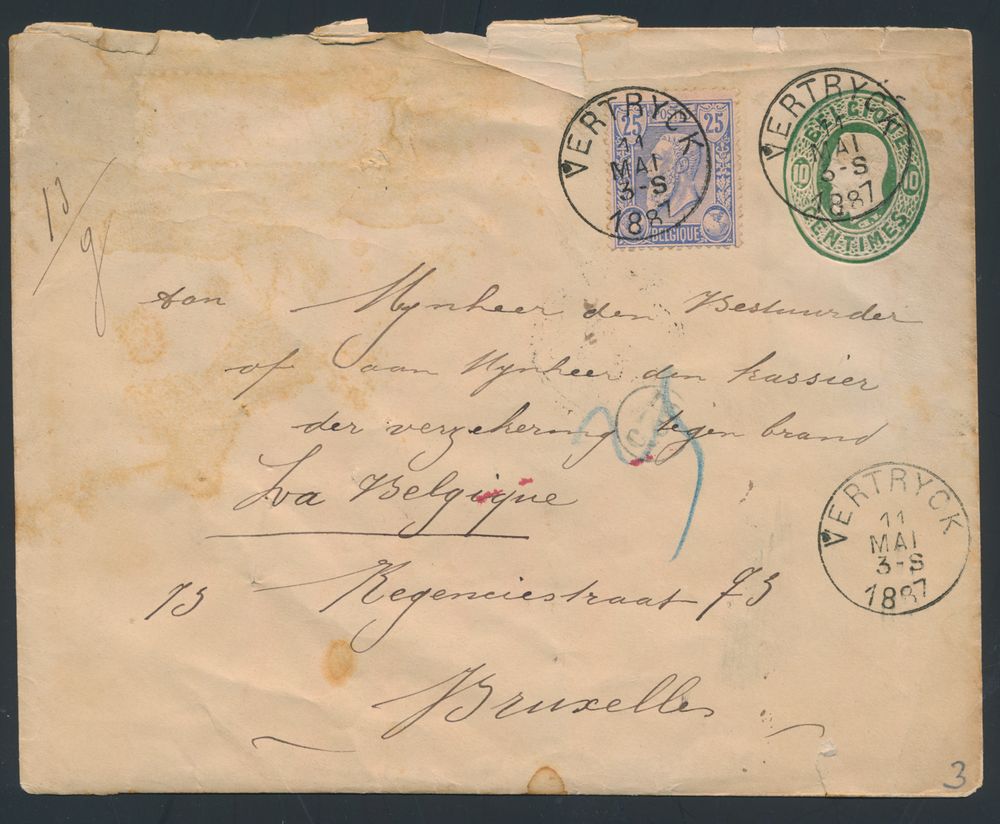 VERTRYCK
11
MAI
3-S
1887
25 POSTES 25
BELGIQUE
VERTRYCK
11
MAI
3-S
1887
BELGIQUE
10 10
CENTIMES
13/9
Aan Mynheer den Bestuurder
of aan Mynheer den kassier
der verzekering tegen brand
La Belgique
73 Regenciestraat 73
Bruxelles
VERTRYCK
11
MAI
3-S
1887
3